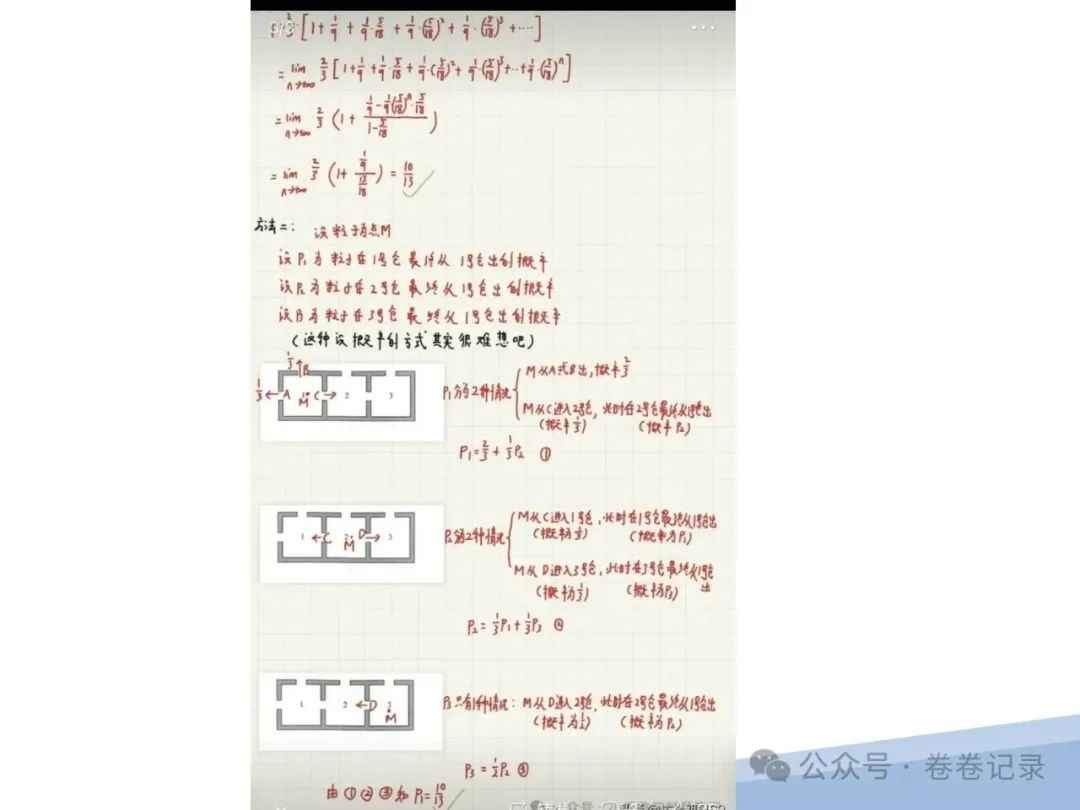 5/3
2/3 [1+1/9+1/9·5/18+1/9·(5/18)²+1/9·(5/18)³+····]
=lim n→+∞ 2/3[1+1/9+1/9·5/18+1/9·(5/18)²+1/9·(5/18)³+··+1/9·(5/18)ⁿ]
=lim n→+∞ 2/3(1+(1/9-1/9(5/18)ⁿ·5/18)/(1-5/18))
=lim n→+∞ 2/3(1+(1/9)/(13/18))=10/13
方法二: 设粒子为点M
设P₁为粒子在1号仓最终从1号仓出的概率
设P₂为粒子在2号仓最终从1号仓出的概率
设P₃为粒子在3号仓最终从1号仓出的概率
(这种设概率的方式其实很难想吧)
1/3↑B
1/3←A M C→ 2 3
P₁分为2种情况
M从A或B出,概率2/3
M从C进入2号仓,此时在2号仓最终从1号仓出
(概率1/3) (概率P₂)
P₁=2/3+1/3P₂ ①
1 ←C 2 M D→ 3
P₂分2种情况
M从C进入1号仓,此时在1号仓最终从1号仓出
(概率为1/3) (概率为P₁)
M从D进入3号仓,此时在3号仓最终从1号仓出
(概率为1/3) (概率为P₃)
P₂=1/3P₁+1/3P₃ ②
1 2 ←D 3 M
P₃只有1种情况:M从D进入2号仓,此时在2号仓最终从1号仓出
(概率为1/2) (概率为P₂)
P₃=1/2P₂ ③
由①②③知P₁=10/13
公众号·卷卷记录